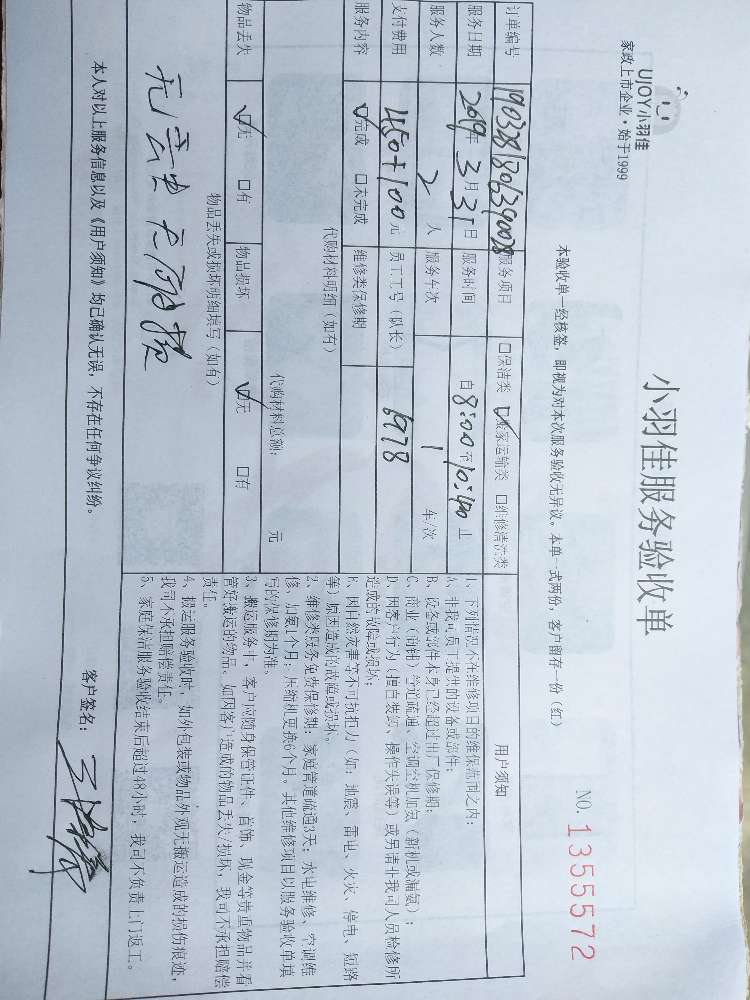 UJOY小羽佳
家政上市企业·始于1999
小羽佳服务验收单
NO. 1355572
本验收单一经核签，即视为对本次服务验收无异议。本单一式两份，客户留存一份（红）
订单编号 1903281806390028 服务项目 □保洁类 ☑搬家运输类 □维修清洗类
服务日期 2019年3月31日 服务时间 自8:00至10:40止
服务人数 2人 服务车次 1 车/次
支付费用 450+100元 员工工号（队长） 6978
服务内容 ☑完成 □未完成 维修类保修期
代购材料明细（如有）
代购材料总额： 元
物品丢失 ☑无 □有 物品损坏 ☑无 □有
物品丢失或损坏明细填写（如有）
用户须知
1、下列情况不在维修项目的维保范围之内：
A、非我司员工提供的设备或部件；
B、设备或部件本身已经超过出厂保修期；
C、商业（商铺）管道疏通、空调空机加氨（新机或漏氨）；
D、因客户行为（擅自装卸、操作失误等）或另请非我司人员检修所
造成的故障或损坏；
E、因自然灾害等不可抗拒力（如：地震、雷电、火灾、停电、短路
等）原因造成的故障或损坏。
2、维修类服务免费保修期：家庭管道疏通3天；水电维修、空调维
修、加氨1个月；压缩机更换6个月。其他维修项目以服务验收单填
写的保修期为准。
3、搬运服务中，客户应随身保管证件、首饰、现金等贵重物品并看
管好搬运的物品。如因客户造成的物品丢失/损坏，我司不承担赔偿
责任。
4、搬运服务验收时，如外包装或物品外观无搬运造成的损伤痕迹，
我司不承担赔偿责任。
5、家庭保洁服务验收结束后超过48小时，我司不负责上门返工。
本人对以上服务信息以及《用户须知》均已确认无误，不存在任何争议纠纷。
客户签名：